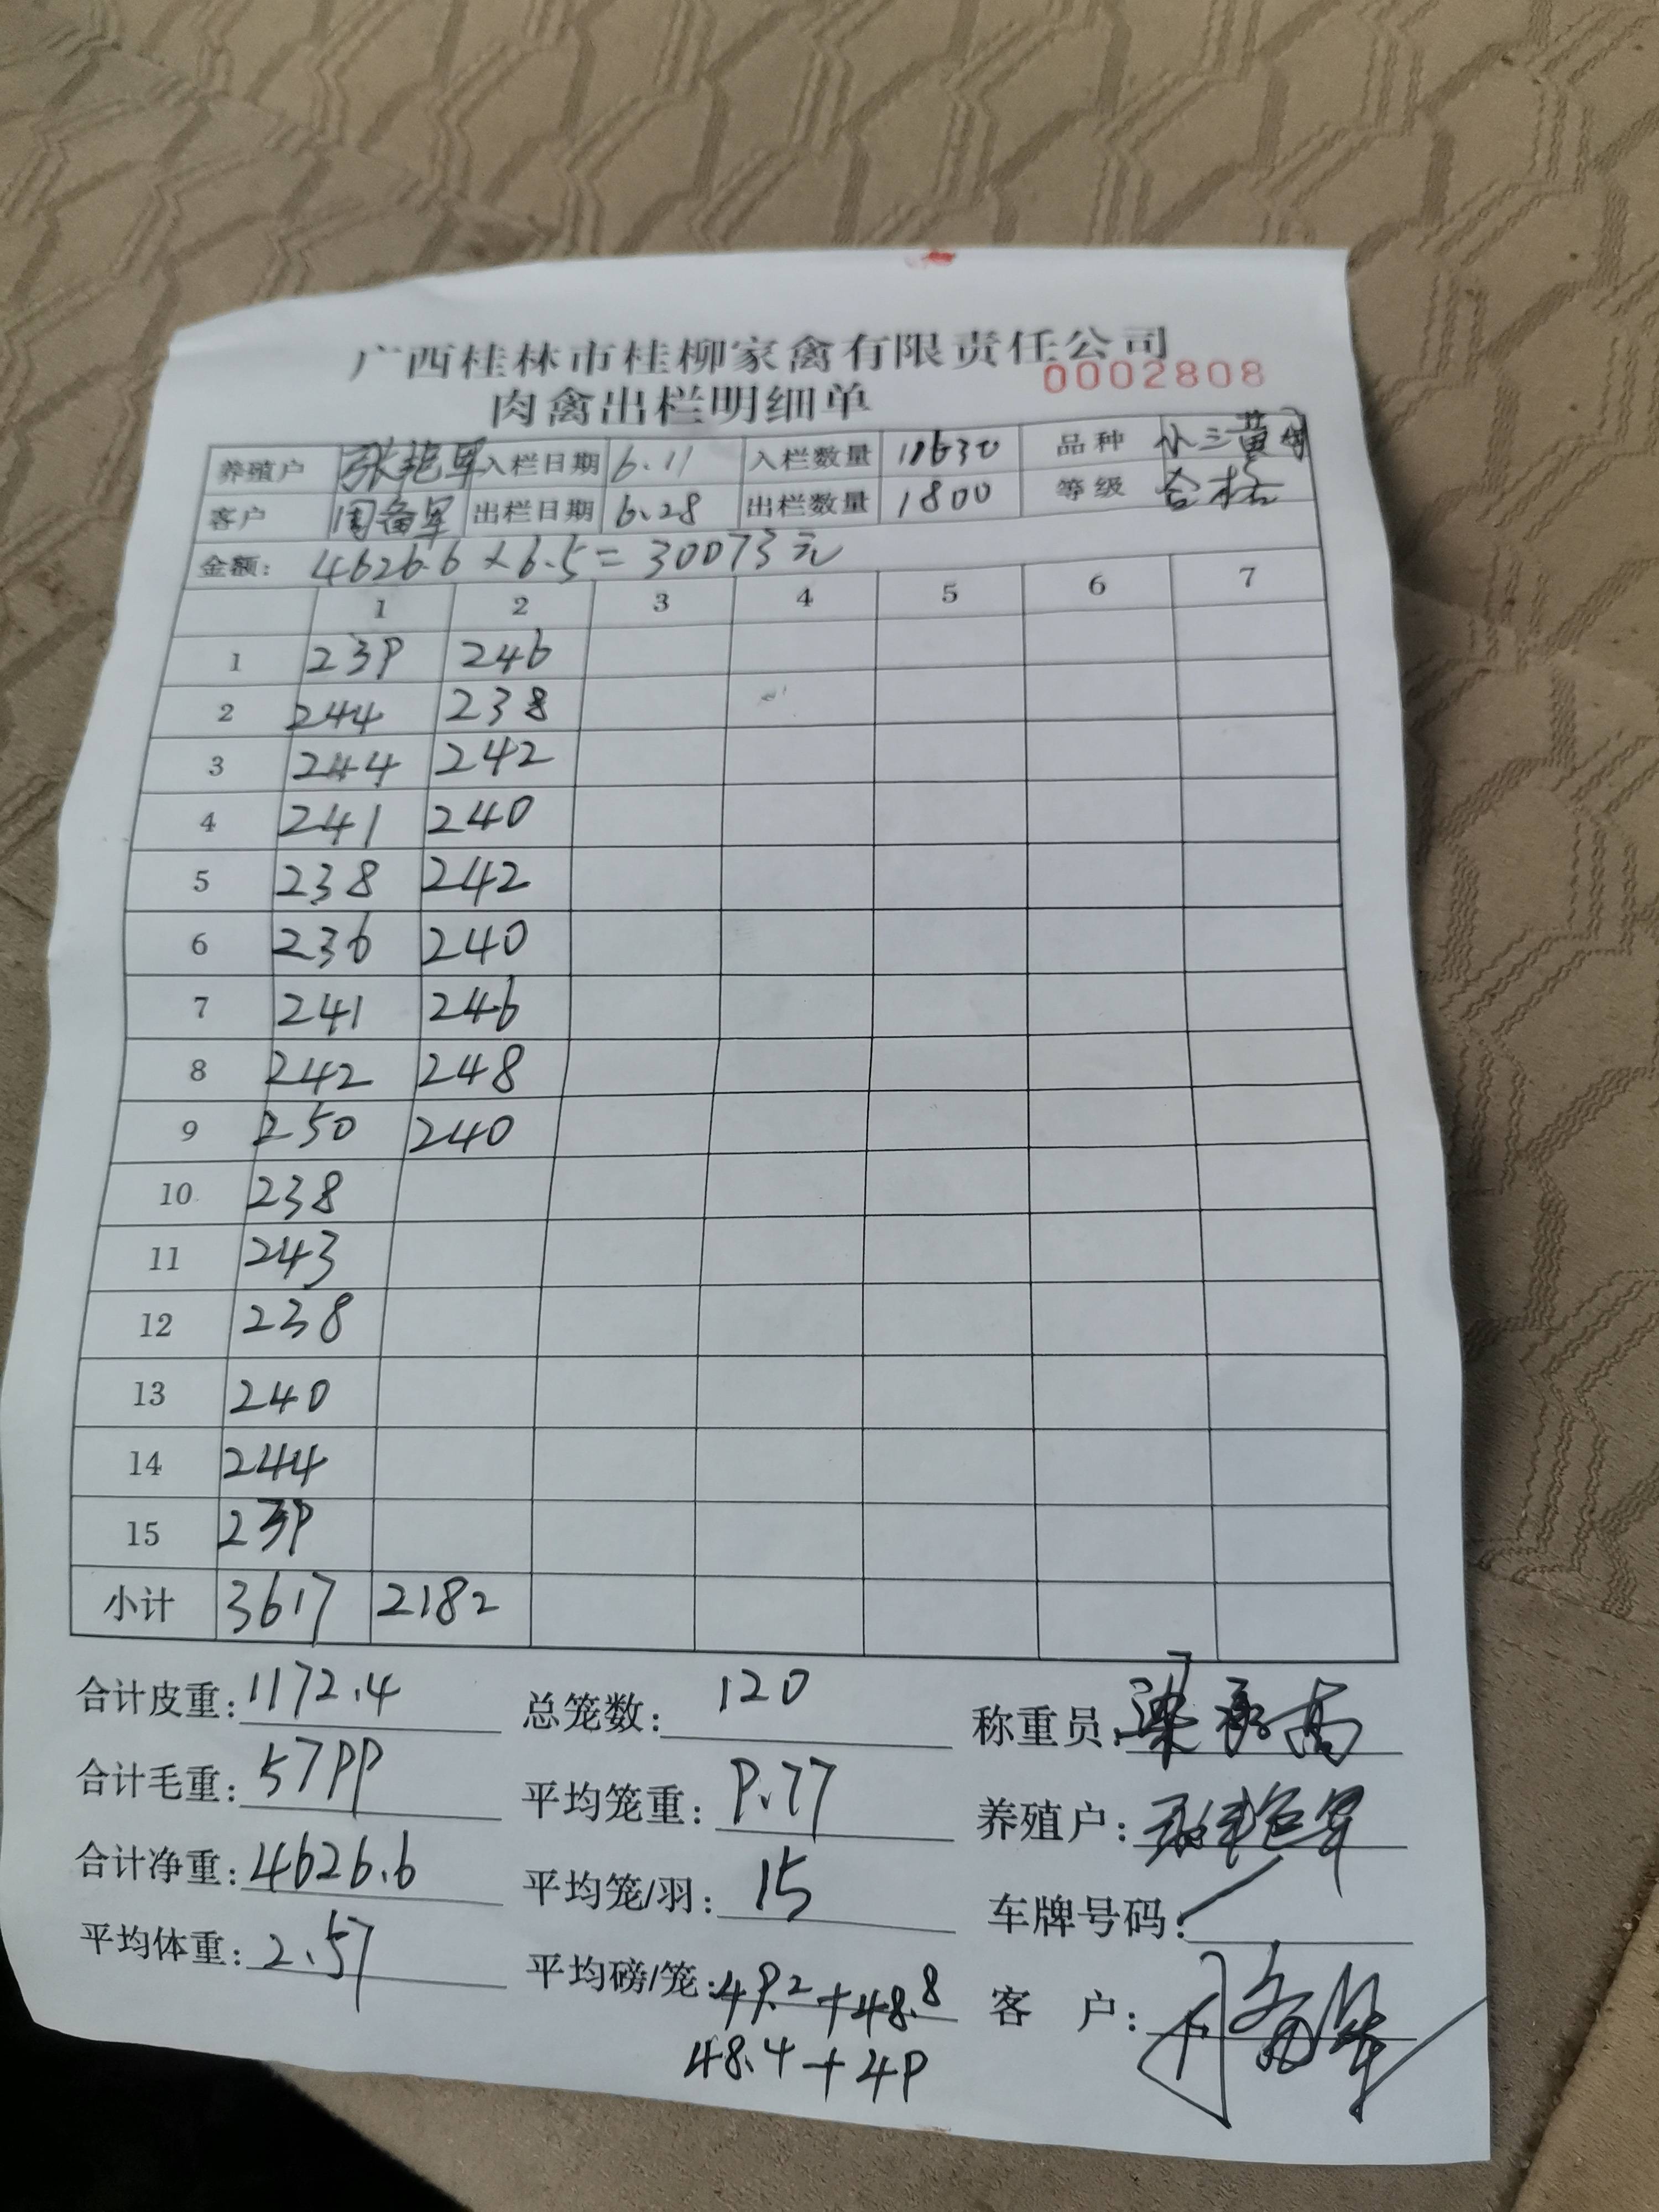 广西桂林市桂柳家禽有限责任公司
0002808
肉禽出栏明细单
养殖户 张艳军 入栏日期 6.11 入栏数量 18630 品种 小三黄
客户 周备军 出栏日期 6.28 出栏数量 1800 等级 合格
金额: 4626.6×6.5=30073元
1 2 3 4 5 6 7
1 239 246
2 244 238
3 244 242
4 241 240
5 238 242
6 236 240
7 241 246
8 242 248
9 250 240
10 238
11 243
12 238
13 240
14 244
15 239
小计 3617 2182
合计皮重: 1172.4 总笼数: 120 称重员: 梁承高
合计毛重: 5799 平均笼重: 9.77 养殖户: 张艳军
合计净重: 4626.6 平均笼/羽: 15 车牌号码: /
平均体重: 2.57 平均磅/笼: 49.2+48.8 客 户: 周备军
48.4+49